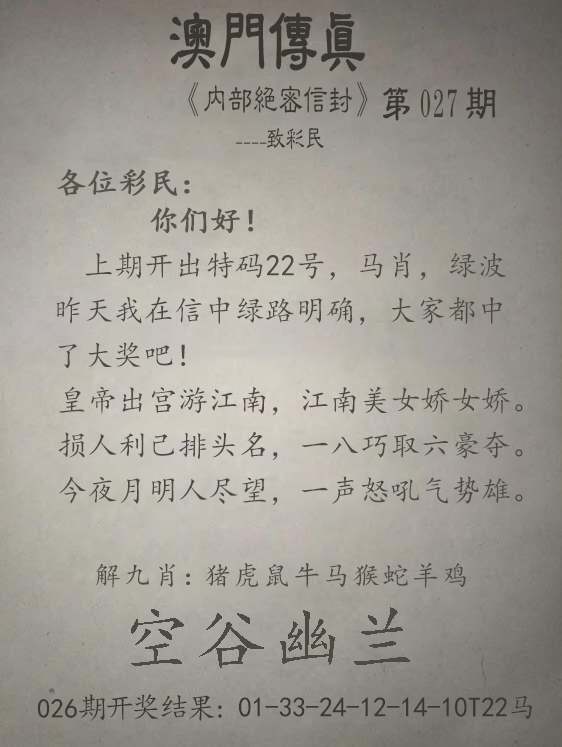 澳門傳真
《内部絕密信封》第027期
----致彩民
各位彩民：
你们好！
上期开出特码22号，马肖，绿波
昨天我在信中绿路明确，大家都中
了大奖吧！
皇帝出宫游江南，江南美女娇女娇。
损人利己排头名，一八巧取六豪夺。
今夜月明人尽望，一声怒吼气势雄。
解九肖：猪虎鼠牛马猴蛇羊鸡
空谷幽兰
026期开奖结果：01-33-24-12-14-10T22马